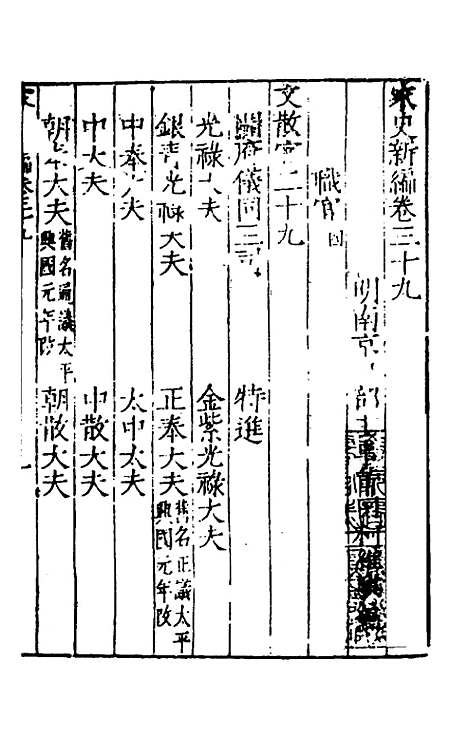 宋史新編卷三十九
明南京 部主事
職官四
文散官二十九
開府儀同三司 特進
光祿大夫 金紫光祿大夫
銀青光祿大夫 正奉大夫舊名正議太平興國元年改
中奉大夫 太中大夫
中大夫 中散大夫
朝奉大夫舊名通議太平興國元年改 朝散大夫
編卷三十九